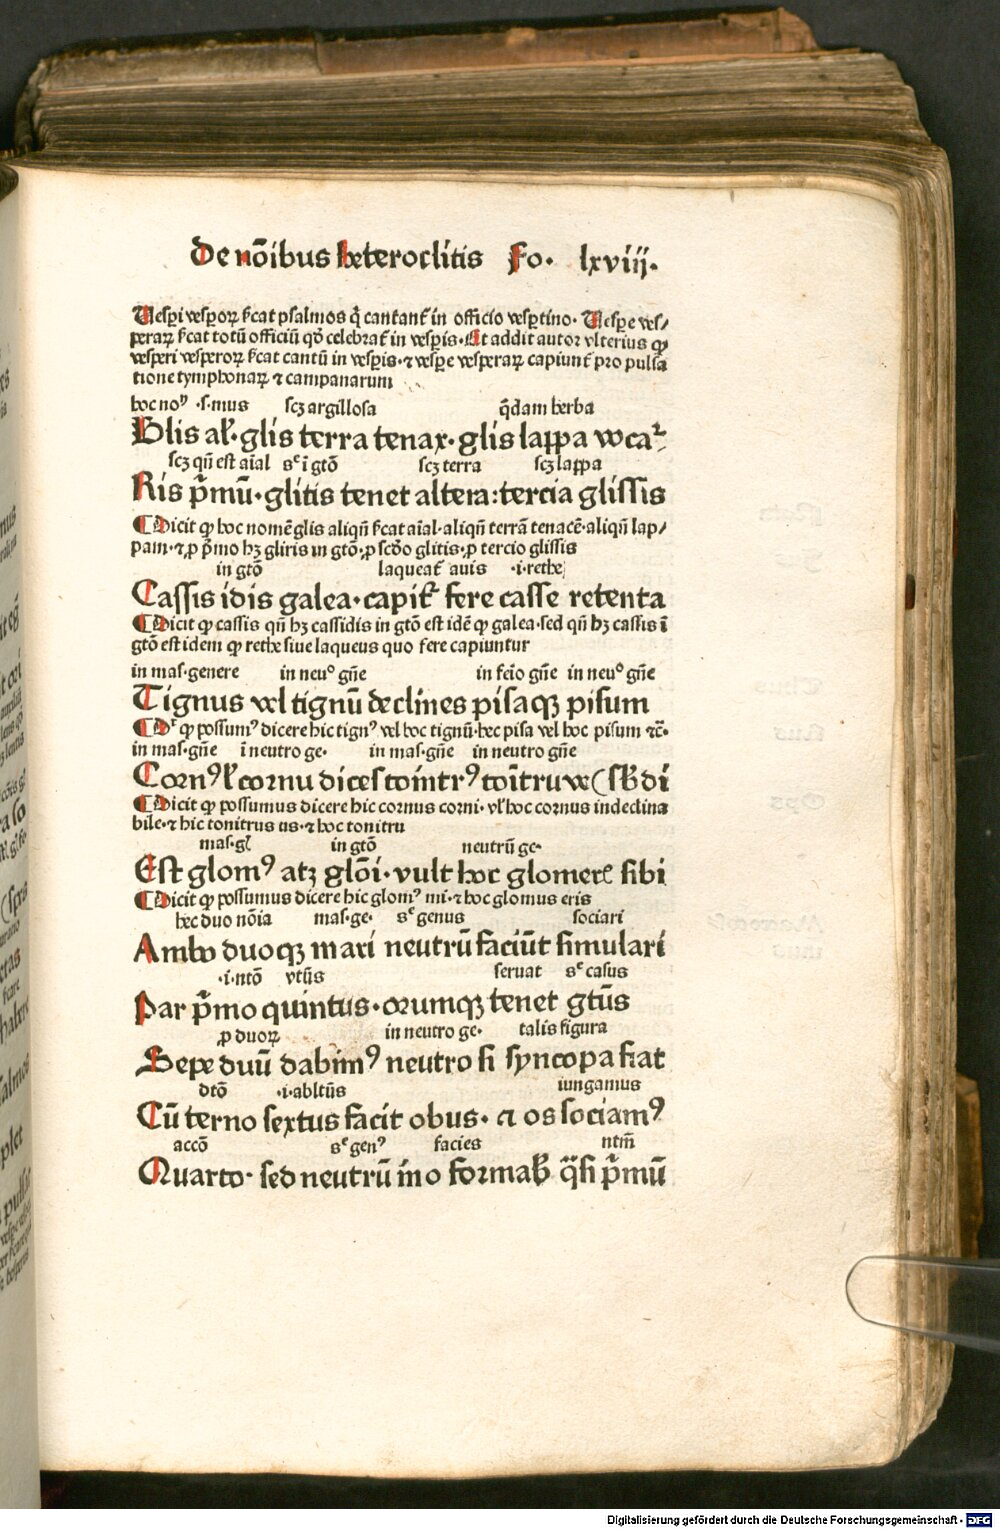 De nōibus heteroclitis Fo. lxviij.
Uesp̄i vesꝑoꝝ ſicat psalmos q̄ cantant᷑ in officio vesꝑtino. Uesꝑe ves/
perarꝝ ſicat totū officiū qḋ celebrat᷑ in vesꝑis. Et addit autor vlterius ꝙ
vesperi vesperorꝝ ſicat cantū in vesꝑis. ⁊ vesꝑe vesperarꝝ capiunt᷑ pro pulſa
tione tymphonarꝝ ⁊ campanarum
hoc noꝰ .s. mus scꝫ argillosa q̄dam herba
Glis al᷑. glis terra tenax. glis lappa voca᷑
scꝫ qn̄ est aīal sꝫ ī gtō scꝫ terra scꝫ lappa
Ris p̄mū. glitis tenet altera: tercia gliſſis
¶ Dicit ꝙ hoc nomē glis aliqn̄ ſicat aīal. aliqn̄ terrā tenacē. aliqn̄ lap/
pam. ⁊ ꝓ p̄mo hꝫ gliris in gtō. ꝓ scḋo glitis. ꝓ tercio gliſſis
in gtō laqueat᷑ auis .i. rethe
Caſſis idis galea. capit᷑ fere caſſe retenta
¶ Dicit ꝙ caſſis qn̄ hꝫ caſſidis in gtō est idē ꝙ galea. sed qn̄ hꝫ caſſis ī
gtō est idem ꝙ rethe ſiue laqueus quo fere capiuntur
in mas. genere in neuº gn̄e in feīo gn̄e in neuº gn̄e
Tignus vel tignū declines pisaqꝫ pisum
¶ Dꝛ ꝙ poſſumꝰ dicere hic tignꝰ vel hoc tignū. hec pisa vel hoc pisum ⁊c̄.
in mas. gn̄e ī neutro ge. in mas. gn̄e in neutro gn̄e
Cornꝰ l᷑ cornu dices tonitrꝰ toītruve (sb̄di
¶ Dicit ꝙ poſſumus dicere hic cornus corni. vl᷑ hoc cornus indeclina
bile. ⁊ hic tonitrus us. ⁊ hoc tonitru
mas. gl᷑ in gtō neutrū ge.
Est glomꝰ atꝫ glōi. vult hoc glomere᷑ sibi
¶ Dicit ꝙ poſſumus dicere hic glomꝰ mi. ⁊ hoc glomus eris
hec duo nōia mas. ge. sꝫ genus sociari
Ambo duoqꝫ mari neutrū faciūt simulari
.i. ntō vtūs seruat sꝫ casus
Par p̄mo quintus. orumqꝫ tenet gtūs
ꝓ duorꝝ in neutro ge. talis figura
Sepe duū dabimꝰ neutro si syncopa fiat
dtō .i. abltūs iungamus
Cū terno sextus facit obus. a os sociamꝰ
accō sꝫ genꝰ facies ntm̄
Quarto. sed neutrū īmo formab᷑ q̄si p̄mū
Digitalisierung gefördert durch die Deutsche Forschungsgemeinschaft - DFG